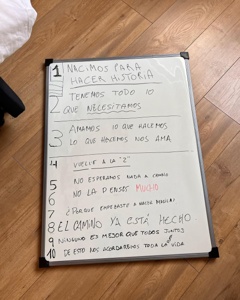 1 NACIMOS PARA
HACER HISTORIA
2 TENEMOS TODO LO
QUE NECESITAMOS
3 AMAMOS LO QUE HACEMOS
LO QUE HACEMOS NOS AMA
4 VUELVE A LA "Z"
5 NO ESPERAMOS NADA A CAMBIO
6 NO LA PIENSES MUCHO
7 ¿PORQUE EMPEZASTE A HACER
8 EL CAMINO YA ESTÁ HECHO
9 NINGUNO ES MEJOR QUE TODOS JUNTOS
10 DE ESTO NOS ACORDAREMOS TODA LA VIDA